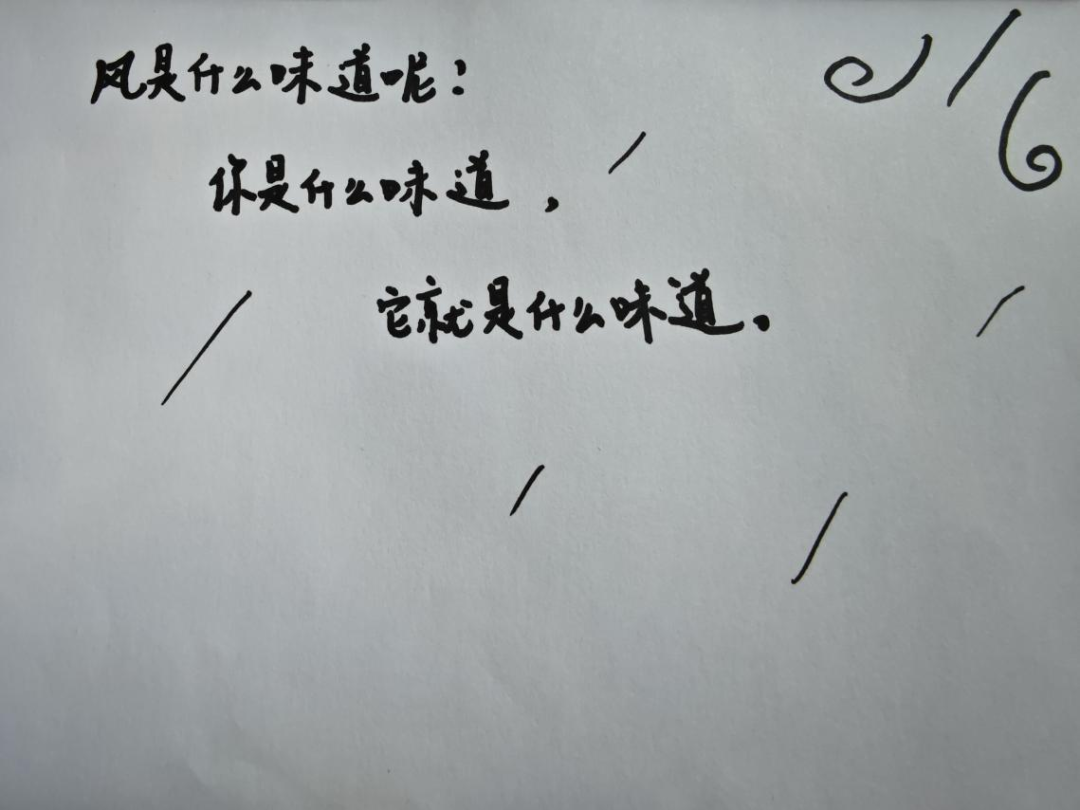 风是什么味道呢？
你是什么味道，
它就是什么味道。